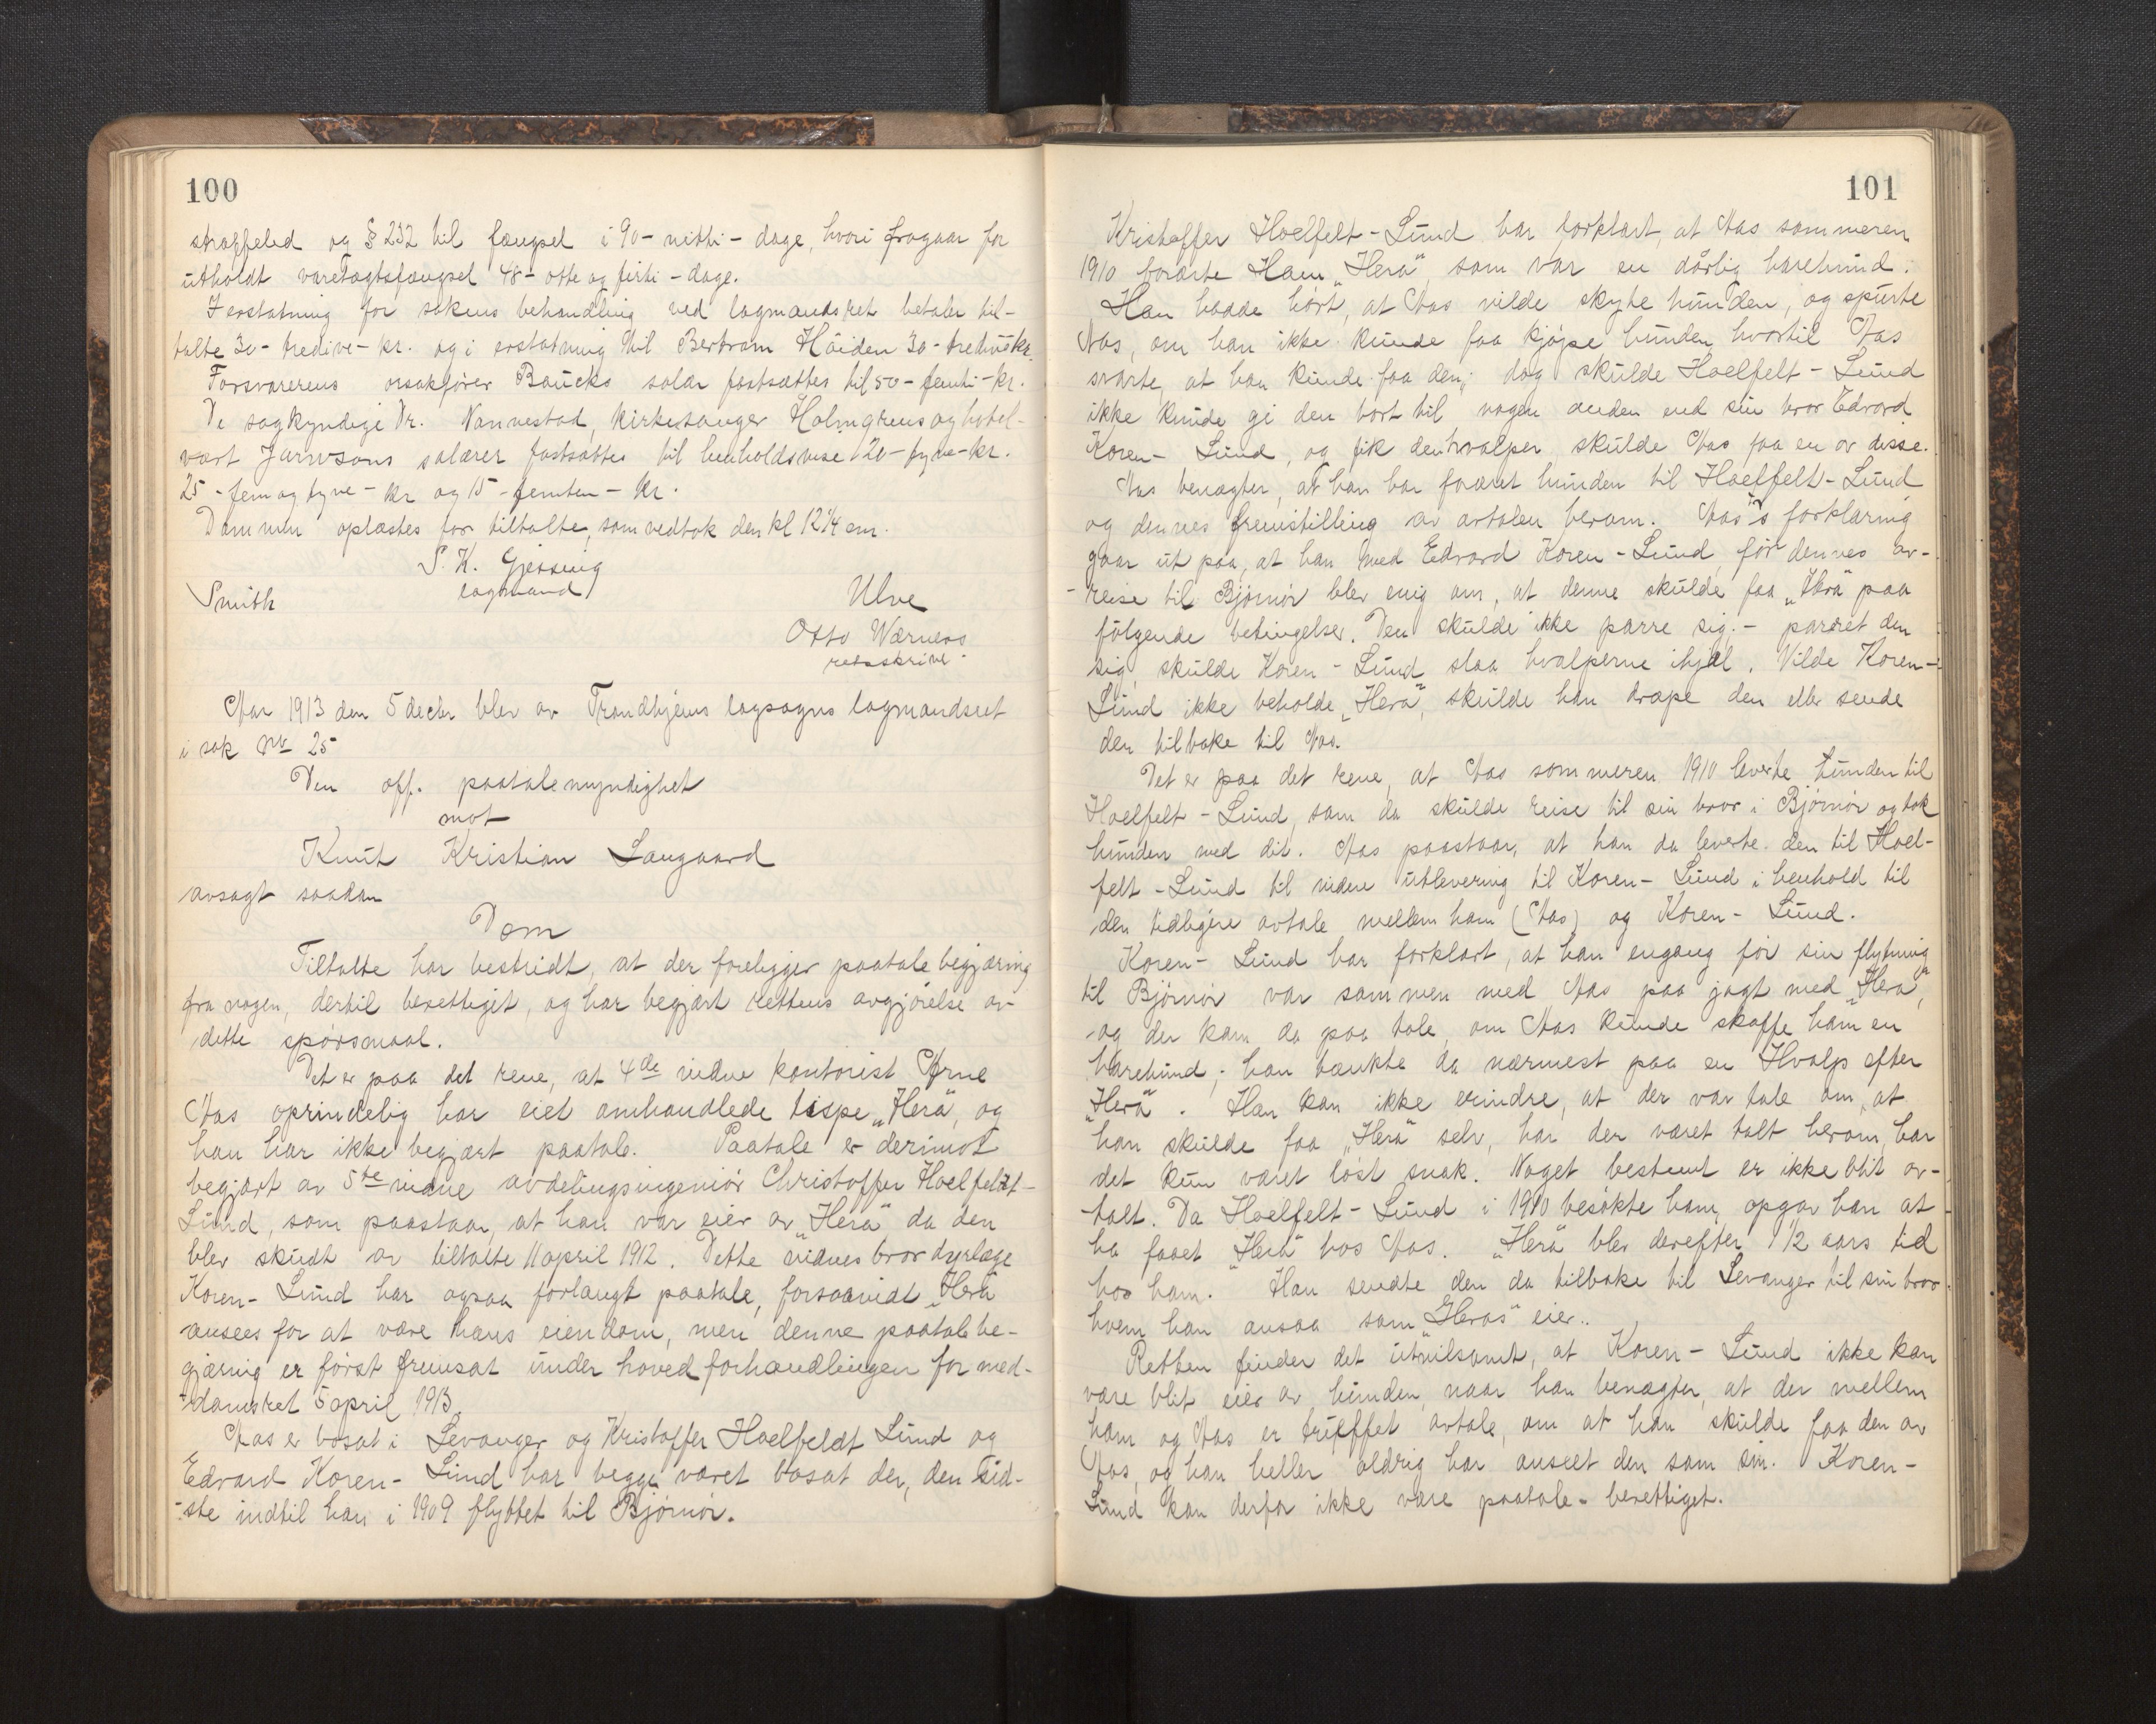 100
straffeled og § 232 til fængsel i 90 - nitti - dage, hvori fragaar for
utholdt varetægtsfængsel 48 - otte og firti - dage.
I erstatning for sakens behandling ved lagmandsret betaler til-
talte 30 - tredive - kr. og i erstatning til Bertram Höiden 30 - tredive kr.
Forsvarerens orsakfører Baucks salær fastsættes til 50 - femti - kr.
De sagkyndige Dr. Nannestad, kirkesanger Holmgrens og hotel-
vært salærer fastsættes til henholdsvise 20 - tyve - kr.
25 - fem og tyve - kr og 15 - femten - kr.
Dommen oplæstes for tiltalte, som vedtok den kl 12 1/4 em.
S. K. Gjessing
lagmand
Smith
Ulve
Otto Værnes
retsskriver.
Aar 1913 den 5 decbr blev av Trondhjems lagsogns lagmandsret
i sak Nr 25
Den off. paatalemyndighet
mot
Knut Kristian Langaard
avsagt saadan
Dom
Tiltalte har bestridt, at der foreligger paatalebegjæring
fra nogen, dertil berettiget, og har begjært rettens avgjørelse av
dette spørsmaal.
Det er paa det rene, at 4de vidne kontorist Arne
Aas oprindelig har eiet omhandlede tispe „Hera“, og
han har ikke begjært paatale. Paatale er derimot
begjært av 5te vidne avdelingsingeniør Christoffer Hoelfeldt-
Lund, som paastaar, at han var eier av „Hera“ da den
blev skudt av tiltalte 11 april 1912. Dette vidnes bror dyrlæge
Koren-Lund har ogsaa forlangt paatale, forsaavidt „Hera“
ansees for at være hans eiendom, men denne paatalebe-
gjæring er først fremsat under hovedforhandlingen for med-
-domsret 5 april 1913.
Aas er bosat i Levanger og Kristoffer Hoelfeldt Lund og
Edvard Koren-Lund har begge været bosat der, den sid-
-ste indtil han i 1909 flyttet til Bjørnør.
101
Kristoffer Hoelfelt-Lund har forklart, at Aas sommeren
1910 forærte Ham „Hera“, som var en dårlig harehund.
Han hadde hørt, at Aas vilde skyte hunden, og spurte
Aas, om han ikke kunde faa kjøpe hunden, hvortil Aas
svarte, at han kunde faa den; dog skulde Hoelfelt-Lund
ikke kunde gi den bort til nogen anden end sin bror Edvard
Koren-Lund, og fik den hvalper skulde Aas faa en av disse.
Aas benægter, at han har foræret hunden til Hoelfelt-Lund
og dennes fremstilling av avtalen herom. Aas's forklaring
gaar ut paa, at han med Edvard Koren-Lund før dennes av-
-reise til Bjørnør blev enig om, at denne skulde faa „Hera“ paa
følgende betingelser. Den skulde ikke parre sig. - parret den
sig, skulde Koren-Lund slaa hvalperne ihjæl. Vilde Koren-
Lund ikke beholde „Hera“, skulde han dræpe den eller sende
den tilbake til Aas.
Det er paa det rene, at Aas sommeren 1910 leverte hunden til
Hoelfelt-Lund, som da skulde reise til sin bror i Bjørnør og tok
hunden med dit. Aas paastaar, at han da leverte den til Hoel-
felt-Lund til videre utlevering til Koren-Lund i henhold til
den tidligere avtale mellem ham (Aas) og Koren-Lund.
Koren-Lund har forklart, at han engang før sin flytning
til Bjørnør var sammen med Aas paa jagt med „Hera“,
og der kom da paa tale, om Aas kunde skaffe ham en
harehund; han tænkte da nærmest paa en Hvalp efter
„Hera“. Han kan ikke erindre, at der var tale om, at
han skulde faa „Hera“ selv, har der været talt herom, har
det kun været løst snak. Noget bestemt er ikke blit av-
talt. Da Hoelfelt-Lund i 1910 besøkte ham, opgav han at
ha faaet „Hera“ hos Aas. „Hera“ blev derefter 1 1/2 aars tid
hos ham. Han sendte den da tilbake til Levanger til sin bror
hvem han ansaa som „Heras“ eier.
Retten finder det utvilsomt, at Koren-Lund ikke kan
være blit eier av hunden, naar han benægter, at der mellem
ham og Aas er truffet avtale, om at han skulde faa den av
Aas, og han heller aldrig har anseet den som sin. Koren-
Lund kan derfor ikke være paatale-berettiget.